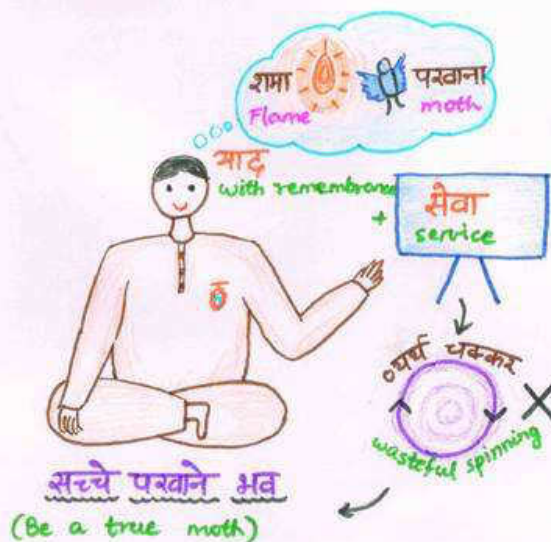 शमा परवाना
Flame moth
याद
with remembrance
+
सेवा
service
व्यर्थ चक्कर
wasteful spinning
सच्चे परवाने भव
(Be a true moth)